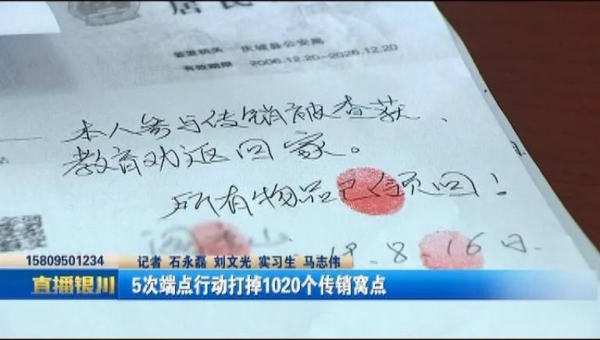 居民
签发机关 庆城县公安局
有效期限 2006.12.20-2026.12.20
本人参与传销被查获,
教育劝返回家。
所有物品已领回!
18.8.16日
15809501234
记者 石永磊 刘文光 实习生 马志伟
直播银川
5次端点行动打掉1020个传销窝点